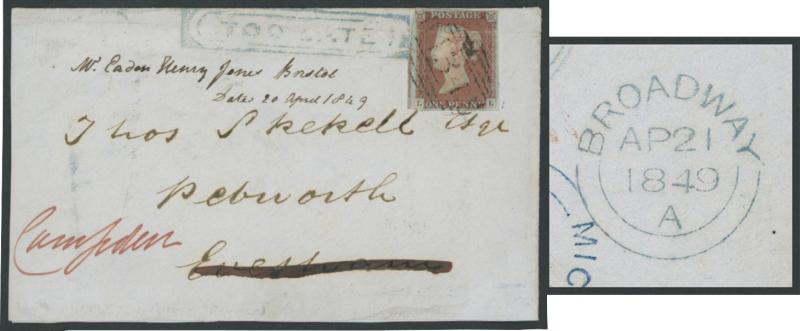 TOO LATE
POSTAGE
L ONE PENNY L
Mr. Eaden Henry Jones Bristol
Date 20 April 1849
Thos Skekell Esqr
Pebworth
Campden
Evesham
BROADWAY
AP21
1849
A
MIC